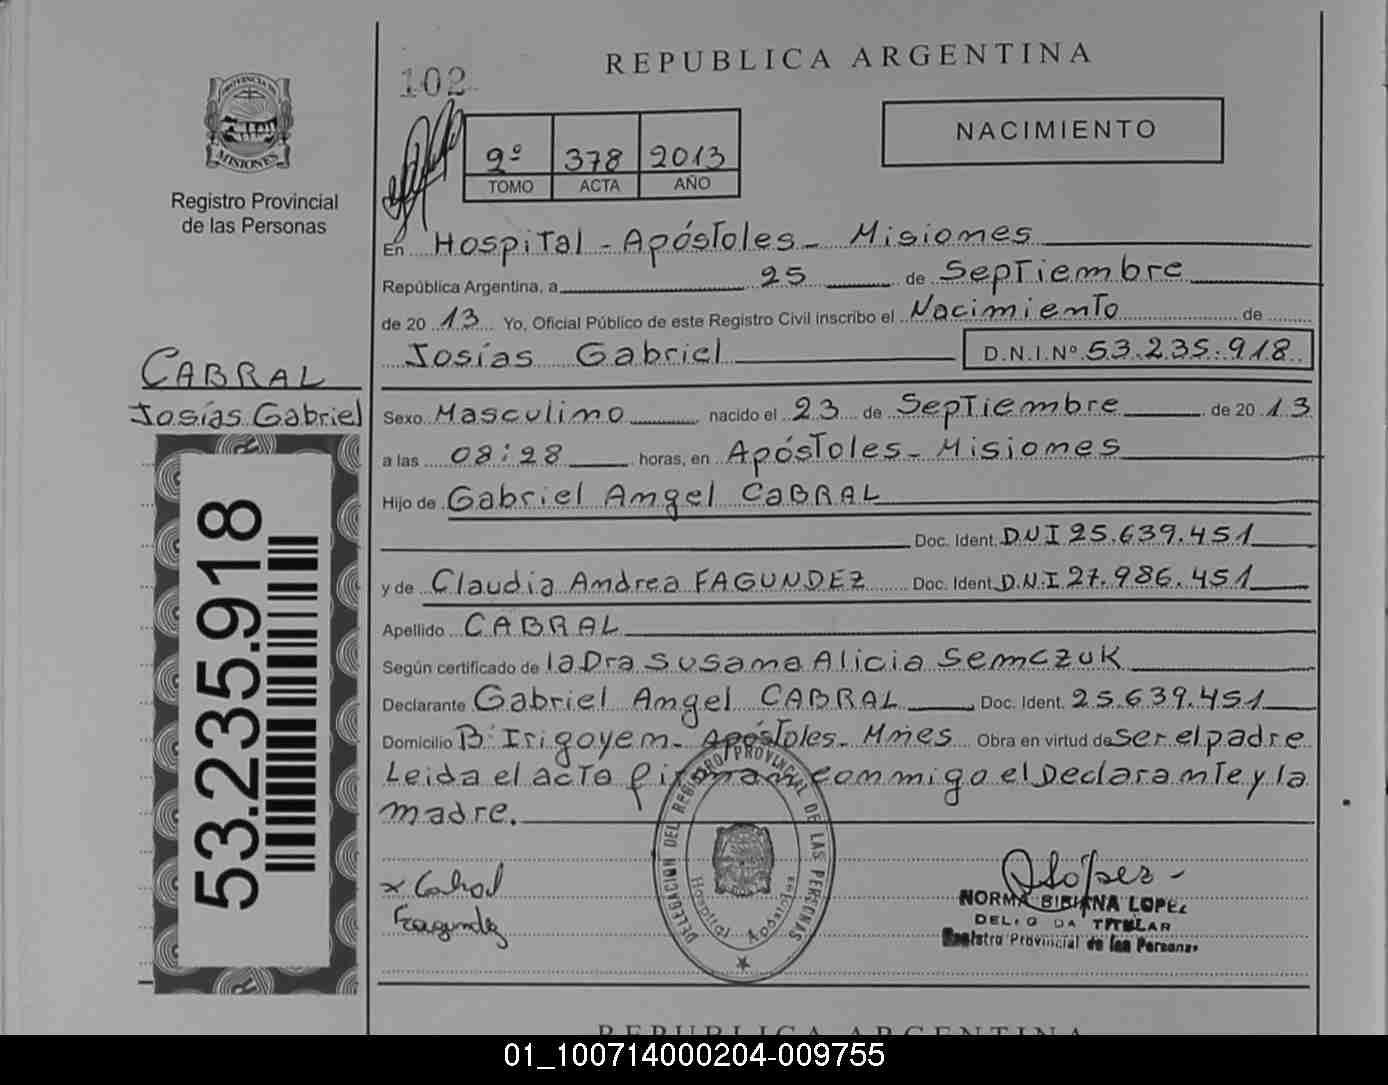 REPUBLICA ARGENTINA
102
PROVINCIA DE
MISIONES
Registro Provincial
de las Personas
NACIMIENTO
2º 378 2013
TOMO ACTA AÑO
En Hospital - Apóstoles - Misiones
República Argentina, a 25 de Septiembre
de 2013 Yo, Oficial Público de este Registro Civil inscribo el Nacimiento de
Josías Gabriel D.N.I.Nº 53.235.918
CABRAL
Josías Gabriel
Sexo Masculino nacido el 23 de Septiembre de 2013
a las 08:28 horas, en Apóstoles - Misiones
Hijo de Gabriel Angel CABRAL
Doc. Ident. DNI 25.639.451
y de Claudia Andrea FAGUNDEZ Doc. Ident. D.N.I 27.986.451
Apellido CABRAL
Según certificado de la Dra Susana Alicia Semczuk
Declarante Gabriel Angel CABRAL Doc. Ident. 25.639.451
Domicilio Bº Irigoyen - Apóstoles - Mnes Obra en virtud de ser el padre
Leida el acta firman conmigo el Declarante y la
madre.
53.235.918
DELEGACION DEL REGISTRO PROVINCIAL DE LAS PERSONAS
Hospital Apóstoles
x Cabral
Fagundez
NLópez
NORMA BIBIANA LOPEZ
DELEGADA TITULAR
Registro Provincial de las Personas
REPUBLICA ARGENTINA
01_100714000204-009755